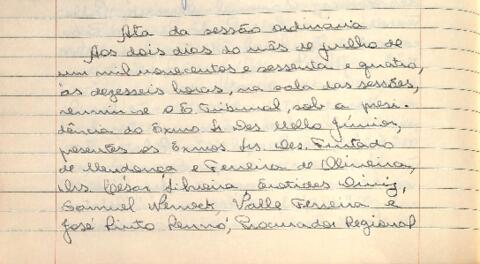 Ata da sessão ordinária
Aos dois dias do mês de julho de
um mil novecentos e sessenta e quatro,
às dezesseis horas, na sala das sessões,
reuniu-se o E. Tribunal, sob a presi-
dência do Exmo Sr Des Mello Júnior,
presentes os Exmos Srs. Des. Furtado
de Mendonça e Ferreira de Oliveira,
Drs. César Silveira, Eurotides Diniz,
Samuel Werneck, Valle Ferreira e
José Pinto Renno, Procurador Regional